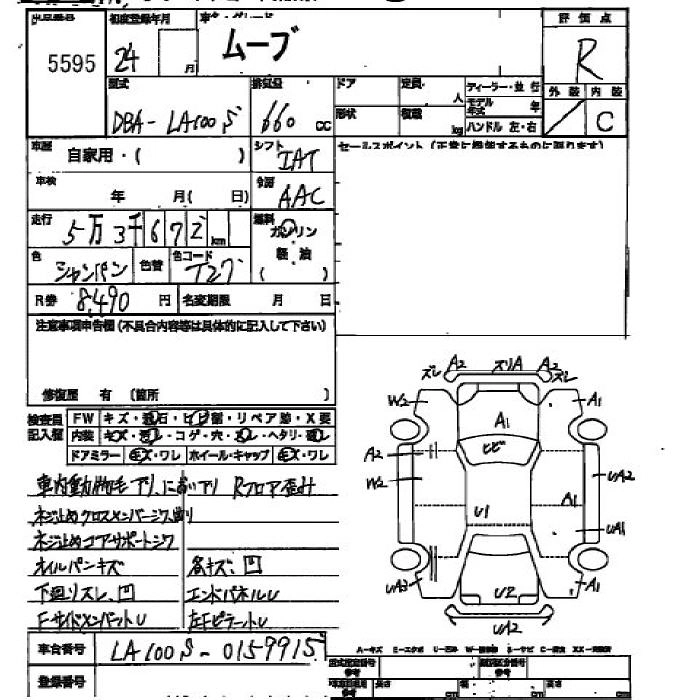 初度登録年月
評価点
5595
24
月
ムーブ
R
型式
排気量
ドア
定員
人
ディーラー・並行
外装 内装
DBA- LA100S
660 cc
形状
積載
kg
モデル年式
年
ハンドル 左・右
C
車歴
自家用・( )
シフト
IAT
車検
年 月( 日)
冷房
AAC
走行
5万3千672 km
燃料
ガソリン
軽油
( )
色
シャンパン
色替
色コード
T27
R券 8,490 円
名変期限 月 日
注意事項申告欄(不具合内容等は具体的に記入して下さい)
修復歴 有 (箇所 )
検査員記入欄
FW キズ・飛石・ヒビ・リペア跡・X要
内装 キズ・汚レ・コゲ・穴・スレ・ヘタリ・破レ
ドアミラー キズ・ワレ ホイール・キャップ キズ・ワレ
車内動物毛アリ においアリ Rフロア歪み
ネジ止めクロスメンバージク曲り
ネジ止めコアサポートジク
オイルパンキズ
各キズ、凹
下廻リズレ、凹
エンドパネルU
F-サイドメンバートU
左Fピラートし
車台番号 LA100S-0159915
登録番号
ズレ A2 ズリA A2 ズレ
W2
A1
A1
ヒビ
A2
W2
UA2
U1
A1
UA1
UA3
A1
U2
UA2
cm
cm
cm